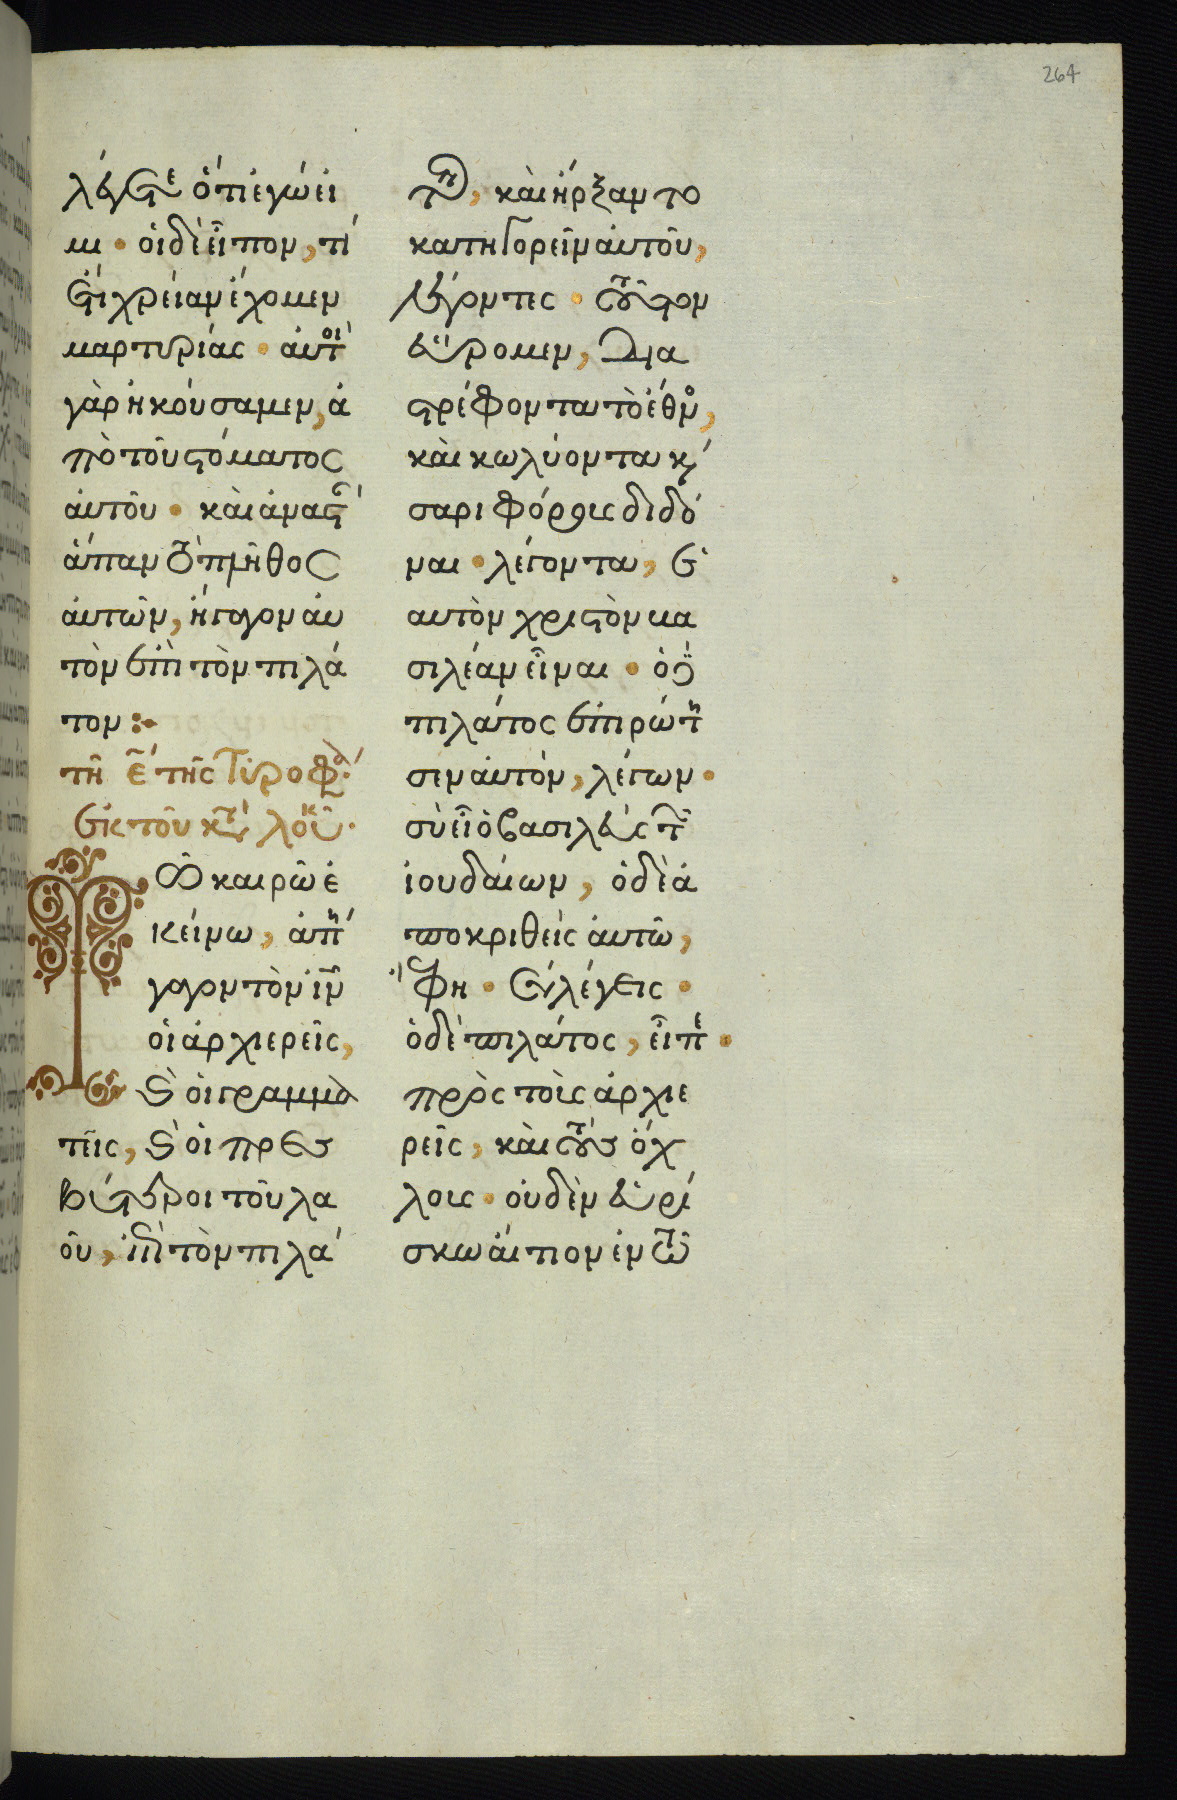 264
λέγετε ὅτι ἐγώ εἰ
μι · οἱ δὲ εἶπον, τί
ἔτι χρείαν ἔχομεν
μαρτυρίας · αὐτοὶ
γὰρ ἠκούσαμεν, ἀ
πὸ τοῦ στόματος
αὐτοῦ · καὶ ἀναστὰν
ἅπαν τὸ πλῆθος
αὐτῶν, ἤγαγον αὐ
τὸν ἐπὶ τὸν πιλά
τον :
τῇ ε τῆς τυροφά
ἐκ τοῦ κατὰ λουκᾶν ·
Τῶ καιρῶ ἐ
κείνω, ἀπή
γαγον τὸν ἰν
οἱ ἀρχιερεῖς,
καὶ οἱ γραμμα
τεῖς, καὶ οἱ πρεσ
βύτεροι τοῦ λα
οῦ, ἐπὶ τὸν πιλά
τον, καὶ ἤρξαντο
κατηγορεῖν αὐτοῦ,
λέγοντες · τοῦτον
εὕρομεν, δια
στρέφοντα τὸ ἔθνος,
καὶ κωλύοντα καί
σαρι φόρους διδό
ναι · λέγοντα, ἑ
αυτὸν χριστὸν βα
σιλέαν εἶναι · ὁ δὲ
πιλάτος ἐπηρώτη
σεν αὐτὸν, λέγων ·
σὺ εἶ ὁ βασιλεὺς τῶν
ἰουδαίων, ὁ δὲ ἀ
ποκριθεὶς αὐτῶ,
ἔφη · σὺ λέγεις ·
ὁ δὲ πιλάτος, εἶπε ·
πρὸς τοὺς ἀρχιε
ρεῖς, καὶ τοὺς ὄχ
λους · οὐδὲν εὑρί
σκω αἴτιον ἐν τῶ